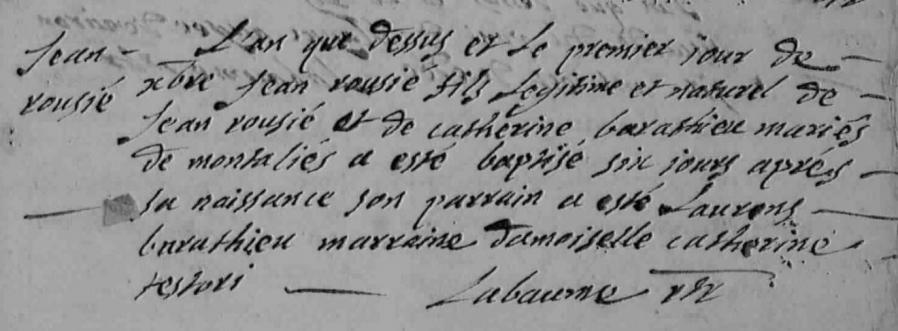 Jean rousié
L'an que dessus et le premier jour de
xbre Jean rousié fils legitime et naturel de
Jean rousié et de catherine barathieu mariés
de montaliés a esté baptisé six jours aprés
sa naissance son parrain a esté Laurens
barathieu marraine damoiselle catherine
testori Labaume ptr